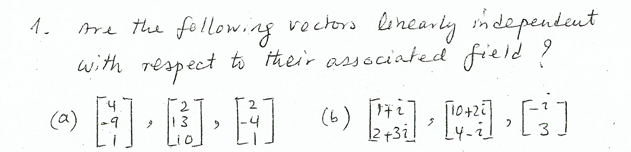 1. Are the following vectors linearly independent
with respect to their associated field ?
(a) [4 -9 1], [2 13 10], [2 -4 1] (b) [1+i 2+3i], [10+2i 4-i], [-i 3]